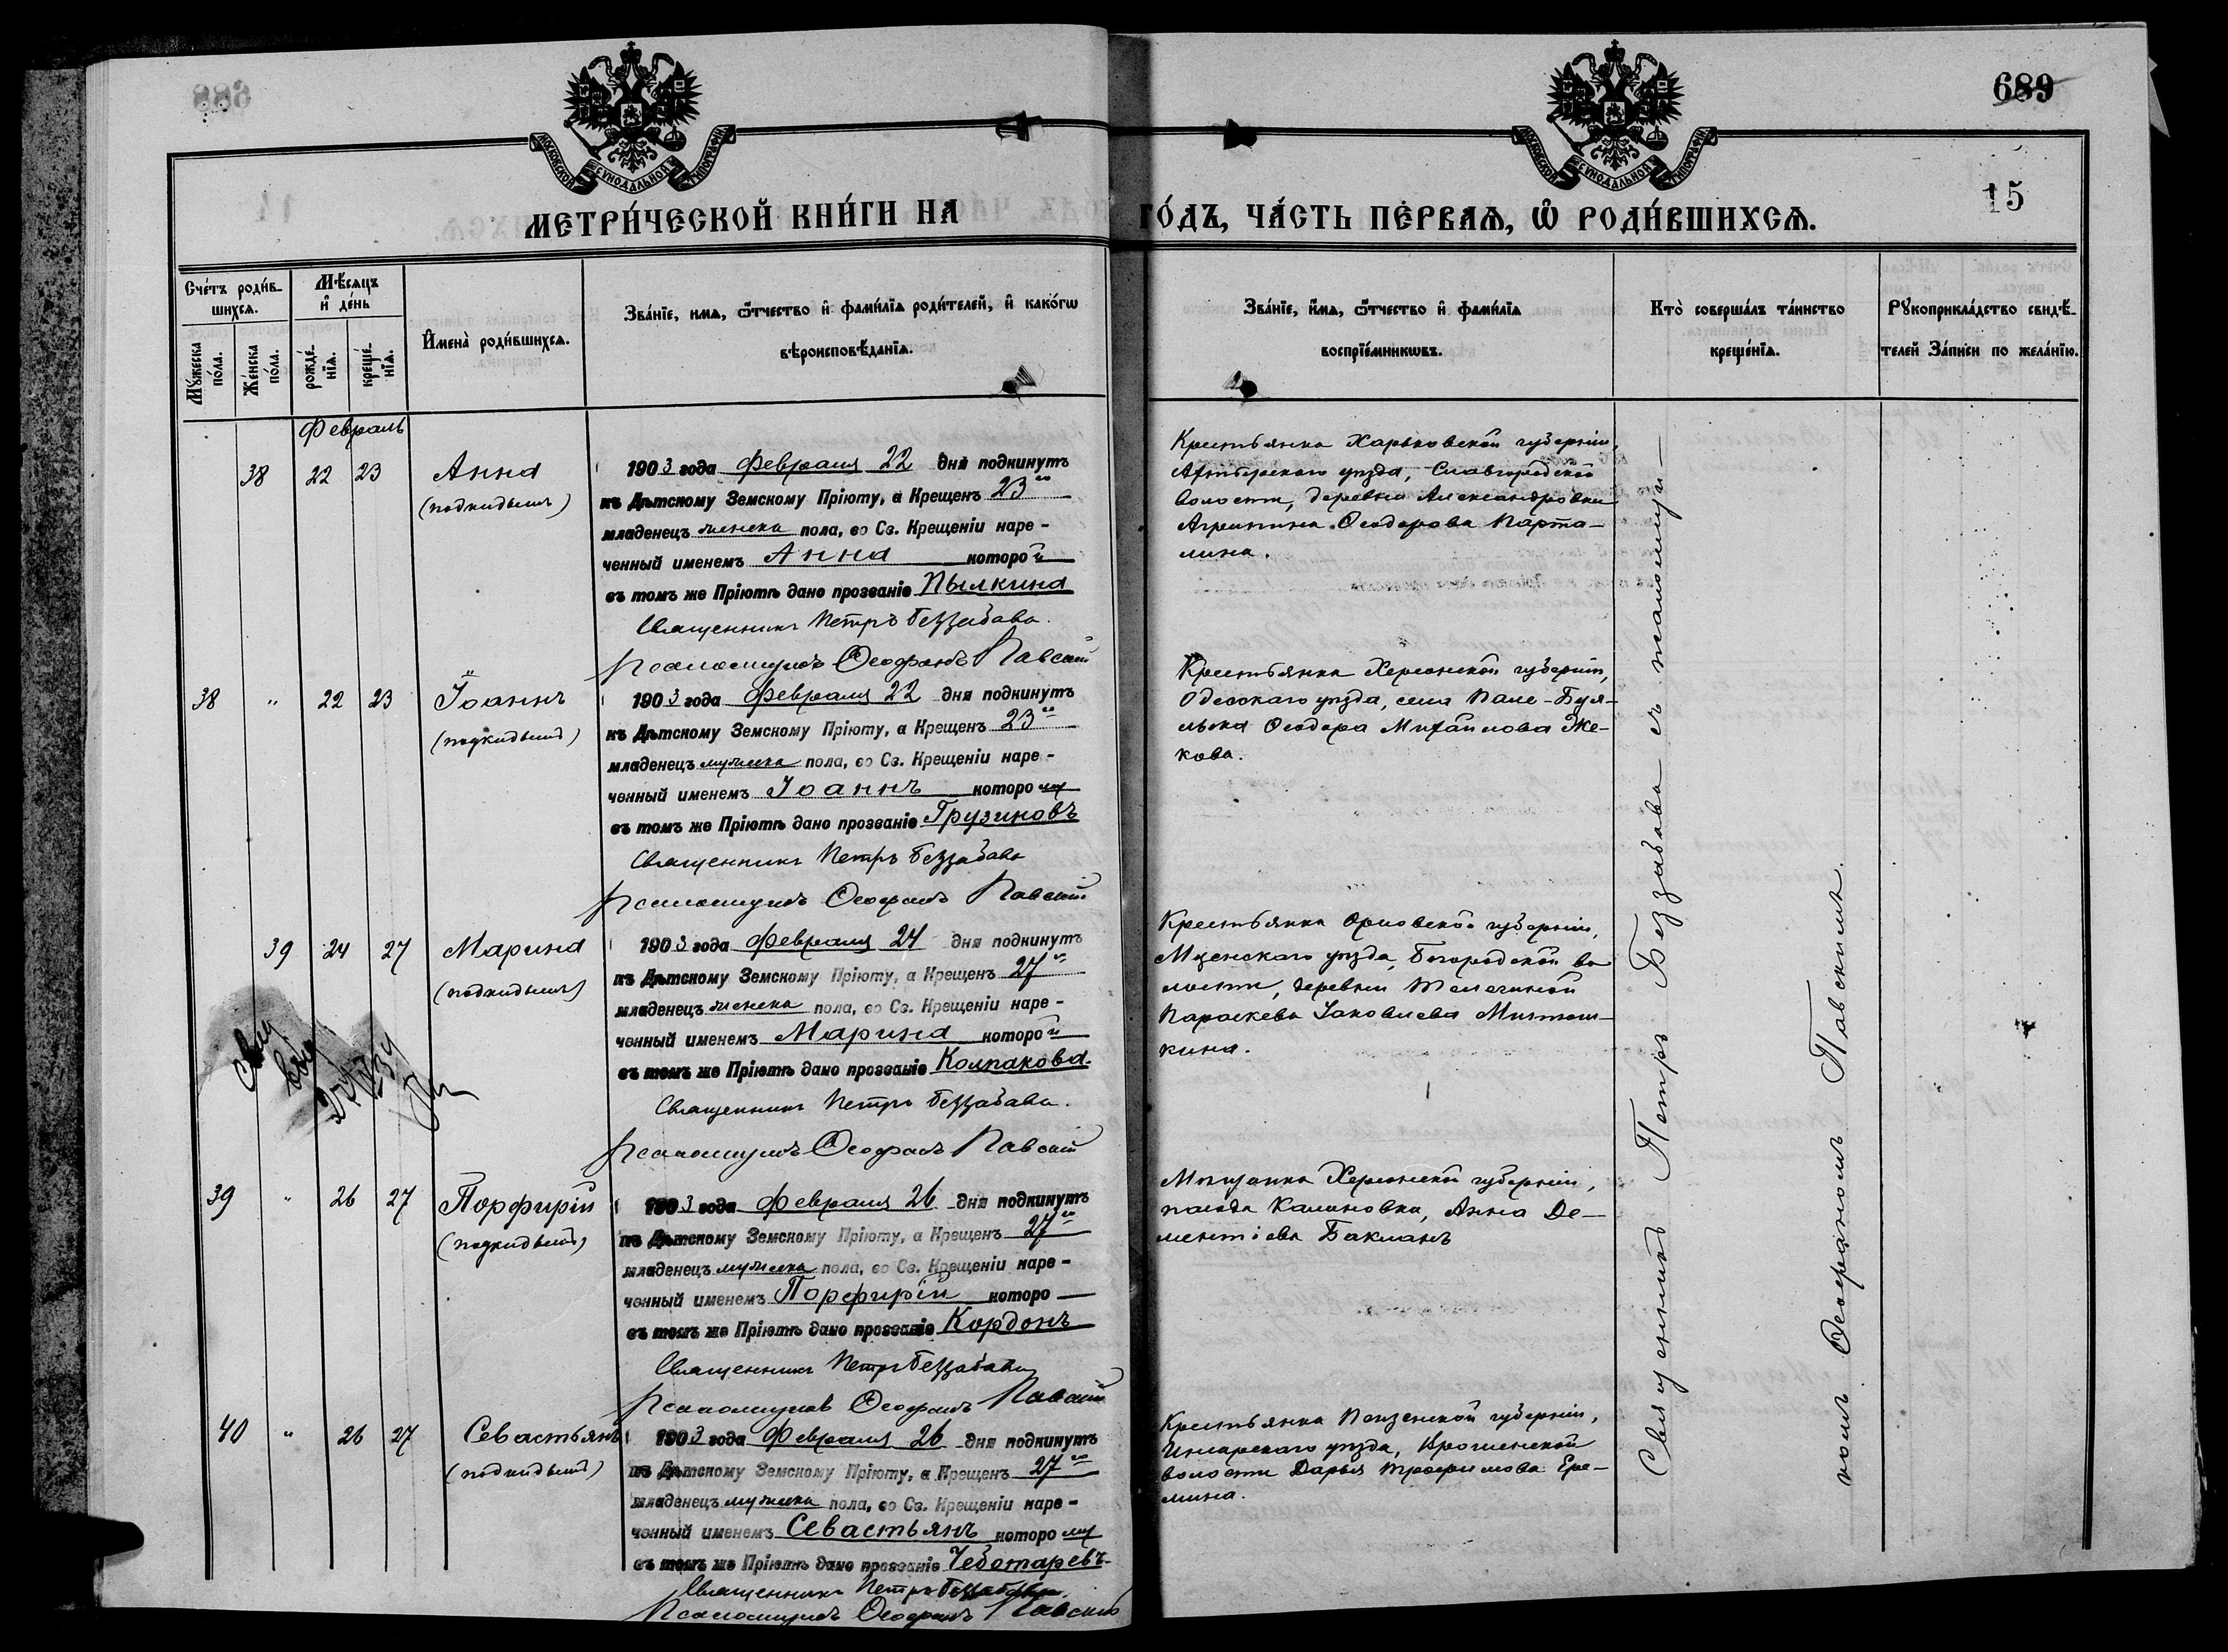 689
15
МОСКОВСКОЙ СѴНОДАЛЬНОЙ ТИПОГРАФІИ
МОСКОВСКОЙ СѴНОДАЛЬНОЙ ТИПОГРАФІИ
МЕТРИ́ЧЕСКОЙ КНИ́ГИ НА ГО́ДЪ, ЧА́СТЬ ПЕ́РВАѦ, Ѡ҆ РОДИ́ВШИХСѦ.
Сче́тъ роди́в-
шихсѧ.
Мꙋ́жеска по́ла.
Же́нска по́ла.
Мѣ́сѧцъ
и҆ де́нь
рожде́-нїѧ.
креще́-нїѧ.
И҆мена̀ роди́вшихсѧ.
Зва́нїе, имѧ, ѻ҆́тчество и҆ фами́лїѧ роди́телей, и҆ како́гѡ
вѣроисповѣ́данїѧ.
Зва́нїе, и҆́мѧ, ѻ҆́тчество и҆ фами́лїѧ
воспрїе́мникѡвъ.
Кто̀ соверша́лъ та́инство
креще́нїѧ.
Рꙋкоприкла́дство свидѣ́-
телей за́писи по жела́нїю.
Февраль
38 22 23 Анна
(подкидышъ)
1903 года Февраля 22 дня подкинутъ
къ Дѣтскому Земскому Пріюту, а Крещенъ 23го
младенецъ женска пола, во Св. Крещеніи наре-
ченный именемъ Анна которой
въ томъ же Пріютѣ дано прозваніе Пылкина
Священникъ Петръ Беззабава.
Псаломщикъ Ѳеофанъ Павскій
Крестьянка Харьковской губерніи,
Ахтырскаго уѣзда, Славгородской
волости, деревни Александровки
Агрипина Ѳеодорова Парта-
лина.
38 " 22 23 Іоаннъ
(подкидышъ)
1903 года Февраля 22 дня подкинутъ
къ Дѣтскому Земскому Пріюту, а Крещенъ 23го
младенецъ мужска пола, во Св. Крещеніи наре-
ченный именемъ Іоаннъ которому
въ томъ же Пріютѣ дано прозваніе Грузиновъ
Священникъ Петръ Беззабава
Псаломщикъ Ѳеофанъ Павскій
Крестьянка Херсонской губерніи,
Одесскаго уѣзда, села Пале-Буя-
лыка Ѳеодора Михайлова Же-
кова.
39 24 27 Марина
(подкидышъ)
1903 года Февраля 24 дня подкинутъ
къ Дѣтскому Земскому Пріюту, а Крещенъ 27го
младенецъ женска пола, во Св. Крещеніи наре-
ченный именемъ Марина которой
въ томъ же Пріютѣ дано прозваніе Колпакова.
Священникъ Петръ Беззабава.
Псаломщикъ Ѳеофанъ Павскій
Крестьянка Орловской губерніи,
Мценскаго уѣзда, Богородской во
лости, деревни
Параскева Іаковлева
кина.
39 " 26 27 Порфирій
(подкидышъ)
1903 года Февраля 26 дня подкинутъ
къ Дѣтскому Земскому Пріюту, а Крещенъ 27го
младенецъ мужска пола, во Св. Крещеніи наре-
ченный именемъ Порфирій которо
въ томъ же Пріютѣ дано прозваніе Кордонъ
Священникъ Петръ Беззабава
Псаломщикъ Ѳеофанъ Павскій
Мѣщанка Херсонской губерніи,
посада Калиновки, Анна Де-
ментіева Бакманъ
40 " 26 27 Севастьянъ
(подкидышъ)
1903 года Февраля 26 дня подкинутъ
къ Дѣтскому Земскому Пріюту, а Крещенъ 27го
младенецъ мужска пола, во Св. Крещеніи наре-
ченный именемъ Севастьянъ которому
въ томъ же Пріютѣ дано прозваніе Чеботаревъ-
Священникъ Петръ Беззабава.
Псаломщикъ Ѳеофанъ Павскій
Крестьянка Пензенской губерніи,
Инсарскаго уѣзда,
волости Дарья Трофимова Ере-
мина.
Священникъ Петръ Беззабава съ псаломщи-
комъ Ѳеофаномъ Павскимъ.